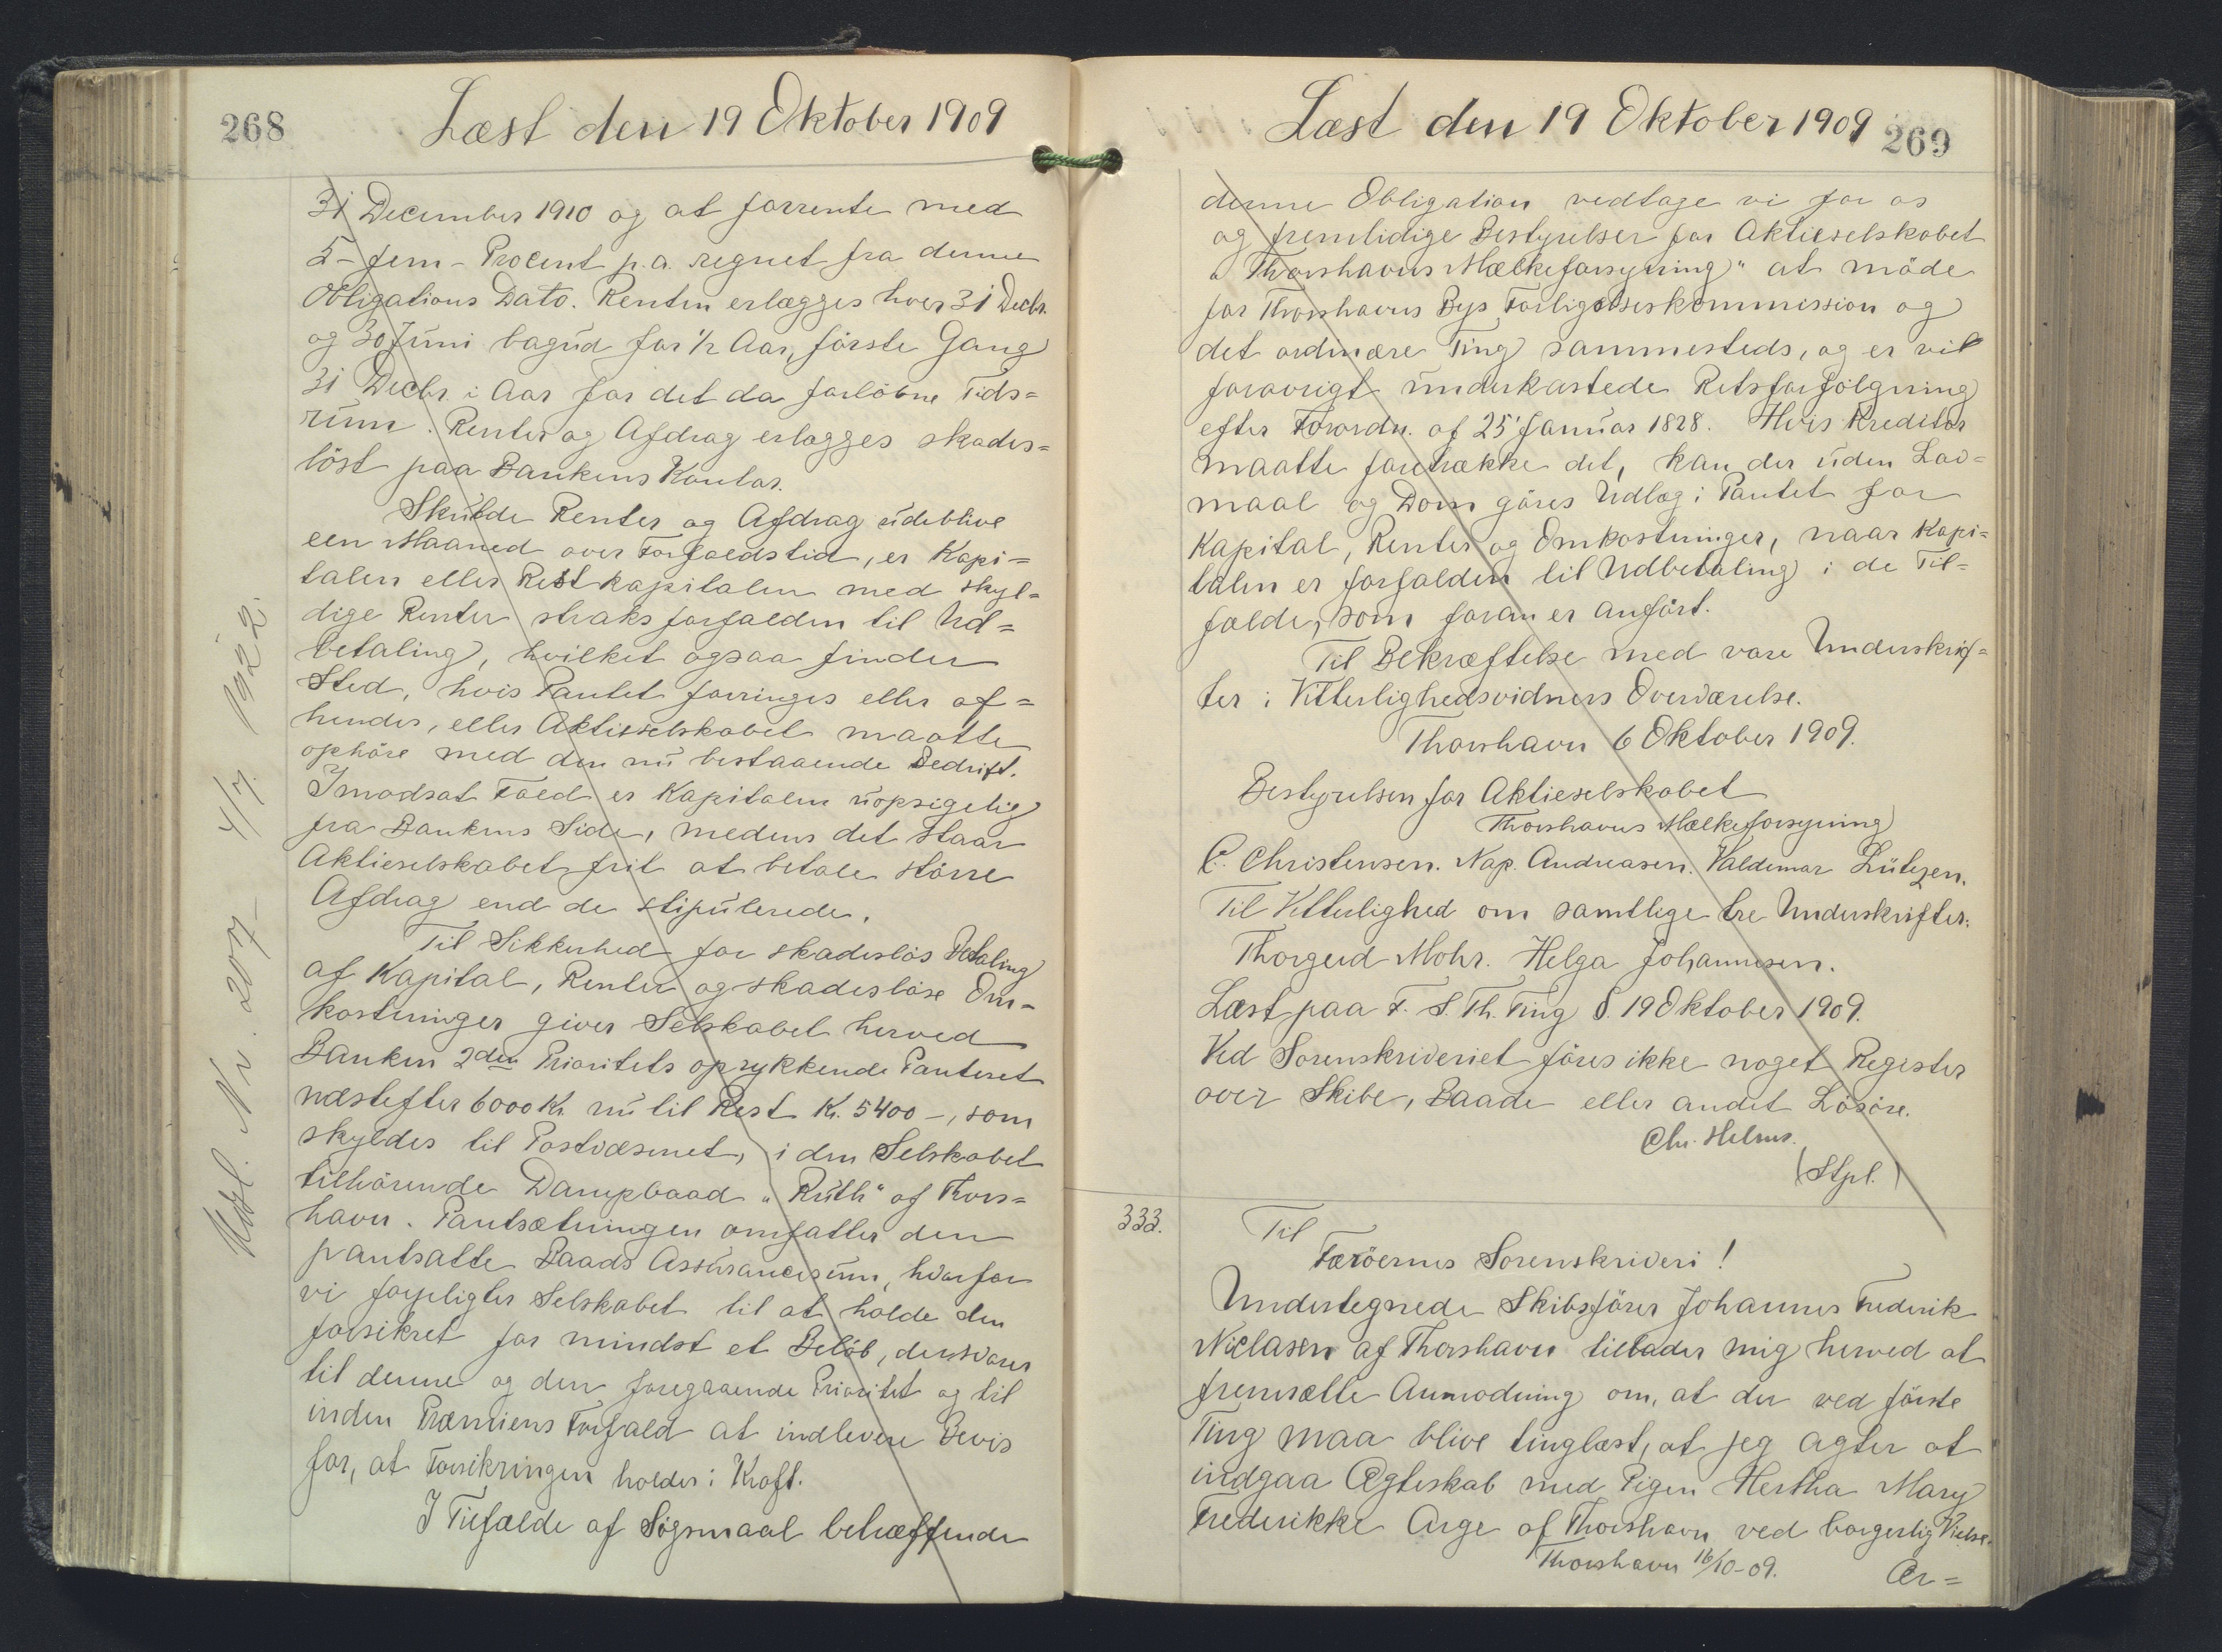 268
Læst den 19 Oktober 1909
31 December 1910 og at forrente med
5 - fem - Procent p.a. regnet fra denne
Obligations Dato. Renten erlægges hver 31 Decbr.
og 30 Juni bagud for 1/2 Aar, förste Gang
31 Decbr. i Aar for det da forløbne Tids=
rum. Renter og Afdrag erlægges skades=
löst paa Bankens Kontor.
Skulde Renter og Afdrag udeblive
een Maaned over Forfaldstid, er Kapi=
talen eller Restkapitalen med skyl=
dige Renter straks forfalden til Ud=
betaling, hvilket ogsaa finder
Sted, hvis Pantet forringes eller af=
hendes, eller Aktieselskabet maatte
ophöre med den nu bestaaende Bedrift.
I modsat Fald er Kapitalen uopsigelig
fra Bankens Side, medens det staar
Aktieselskabet frit at betale större
Afdrag end de stipulerede.
Til Sikkerhed for skadeslös Betaling
af Kapital, Renter og skadeslöse Om=
kostninger giver Selskabet herved
Banken 2den Prioritets oprykkende Panteret
næstefter 6000 Kr. nu til Rest Kr. 5400 -, som
skyldes til Postvæsenet, i den Selskabet
tilhörende Dampbaad „Ruth" af Thors=
havn. Pantsætningen omfatter den
pantsatte Baads Assurancesum, hvorfor
vi forpligter Selskabet til at holde den
forsikret for mindst et Belöb, der svarer
til denne og den foregaaende Prioritet og til
inden Præmiens Forfald at indlevere Bevis
for, at Forsikringen holdes i Kraft.
I Tilfælde af Sögsmaal betræffende
Udsl. Nr. 207 - 4/7. 1922.
Læst den 19 Oktober 1909
269
denne Obligation vedtage vi for os
og fremtidige Bestyrelser for Aktieselskabet
„Thorshavns Mælkeforsyning" at möde
for Thorshavns Bys Forligelseskommission og
det ordinære Ting sammesteds, og er vi
forøvrigt underkastede Retsforfölgning
efter Forordn. af 25 Januar 1828. Hvis Kreditor
maatte foretrække det, kan der uden Lov=
maal og Dom göres Udlæg i Pantet for
Kapital, Renter og Omkostninger, naar Kapi=
talen er forfalden til Udbetaling i de Til=
fælde, som foran er anfört.
Til Bekræftelse med vore Underskrif=
ter i Vitterlighedsvidners Overværelse.
Thorshavn 6 Oktober 1909.
Bestyrelsen for Aktieselskabet
Thorshavns Mælkeforsyning
C. Christensen. Nap. Andreasen. Valdemar Lützen.
Til Vitterlighed om samtlige tre Underskrifter:
Thorgerd Mohr. Helga Johannesen.
Læst paa F. S. Th. Ting d. 19 Oktober 1909.
Ved Sorenskriveriet föres ikke noget Register
over Skibe, Baade eller andet Lösöre.
Chr. Helms.
(Stpl.)
333.
Til
Færöernes Sorenskriveri!
Undertegnede Skibsförer Johannes Frederik
Niclasen af Thorshavn tillader mig herved at
fremsætte Anmodning om, at der ved förste
Ting maa blive tinglæst, at jeg agter at
indgaa Ægteskab med Pigen Hertha Mary
Frederikke Arge af Thorshavn ved borgerlig Vielse.
Thorshavn 16/10-09.
Ær=